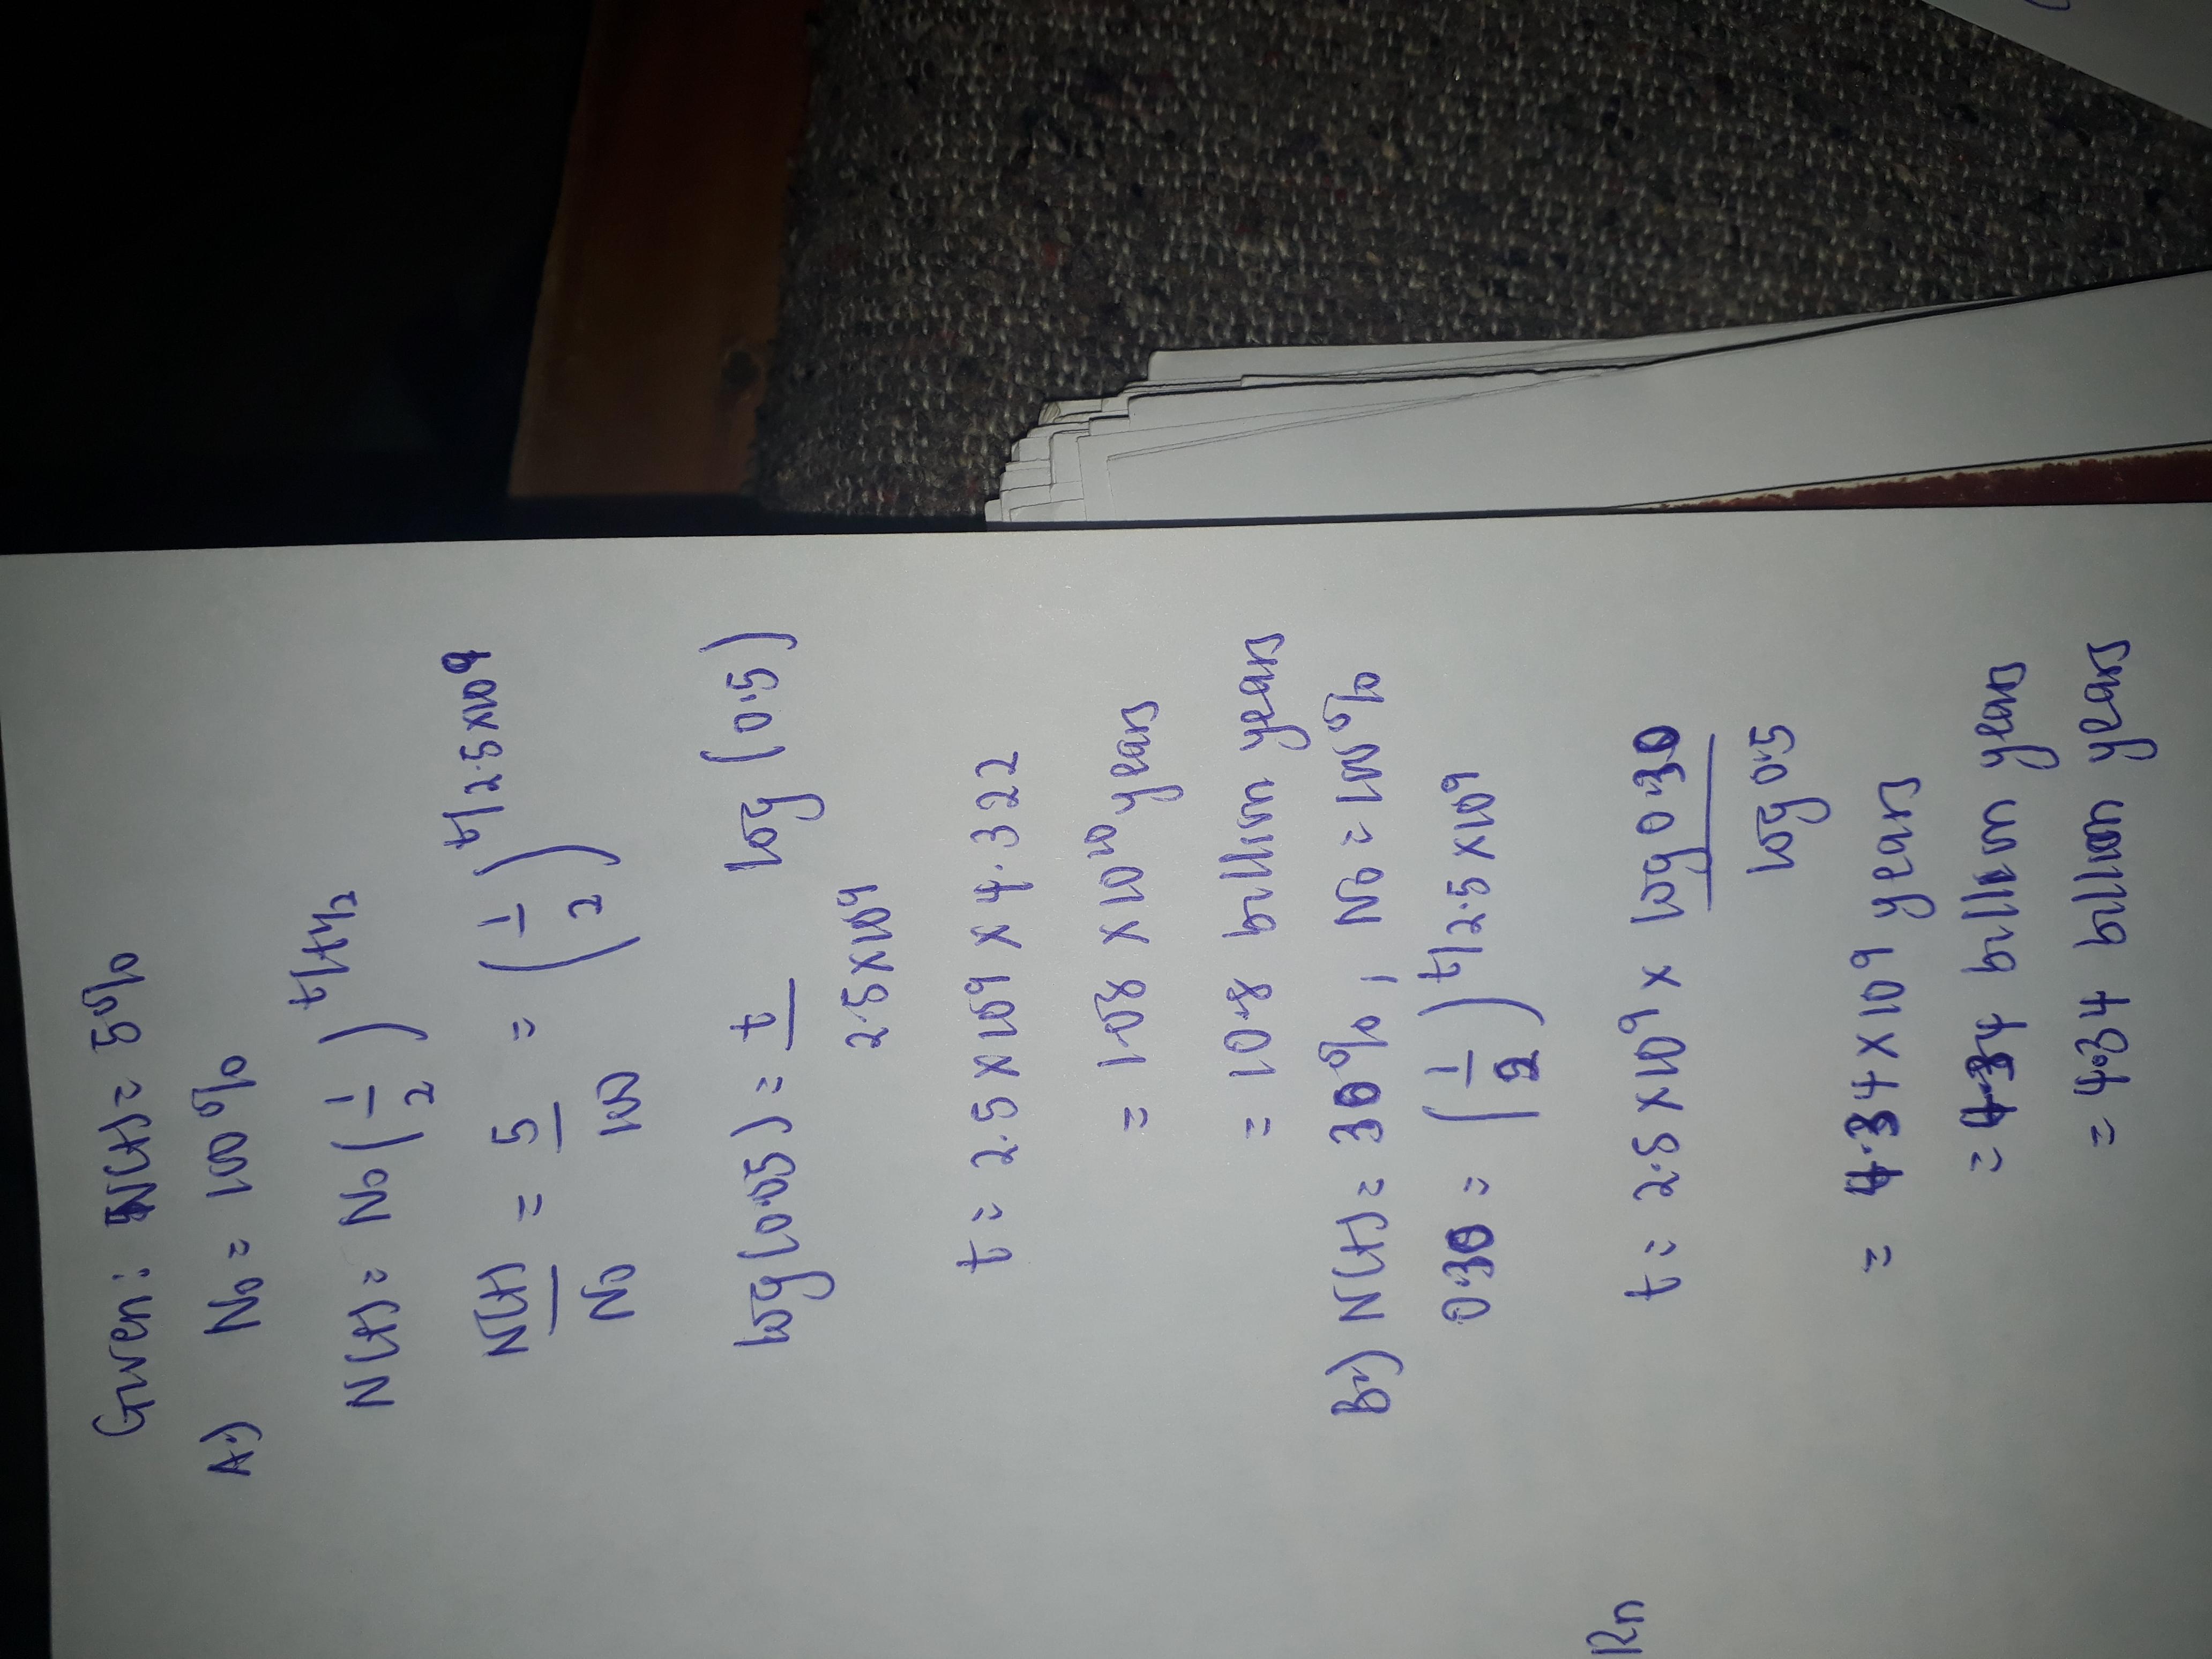 Given: N(t) = 5%
A.) No = 100%
N(t) = No (1/2)^t/t½
N(t)/No = 5/100 = (1/2)^t/2.5x10^9
log(0.05) = t/2.5x10^9 log (0.5)
t = 2.5 x 10^9 x 4.322
= 1.08 x 10^10 years
= 10.8 billion years
b.) N(t) = 30% , No = 100%
0.30 = (1/2)^t/2.5x10^9
t = 2.5 x 10^9 x log 0.30/log 0.5
= 4.34 x 10^9 years
= 4.34 billion years
= 4.34 billion years
Rn